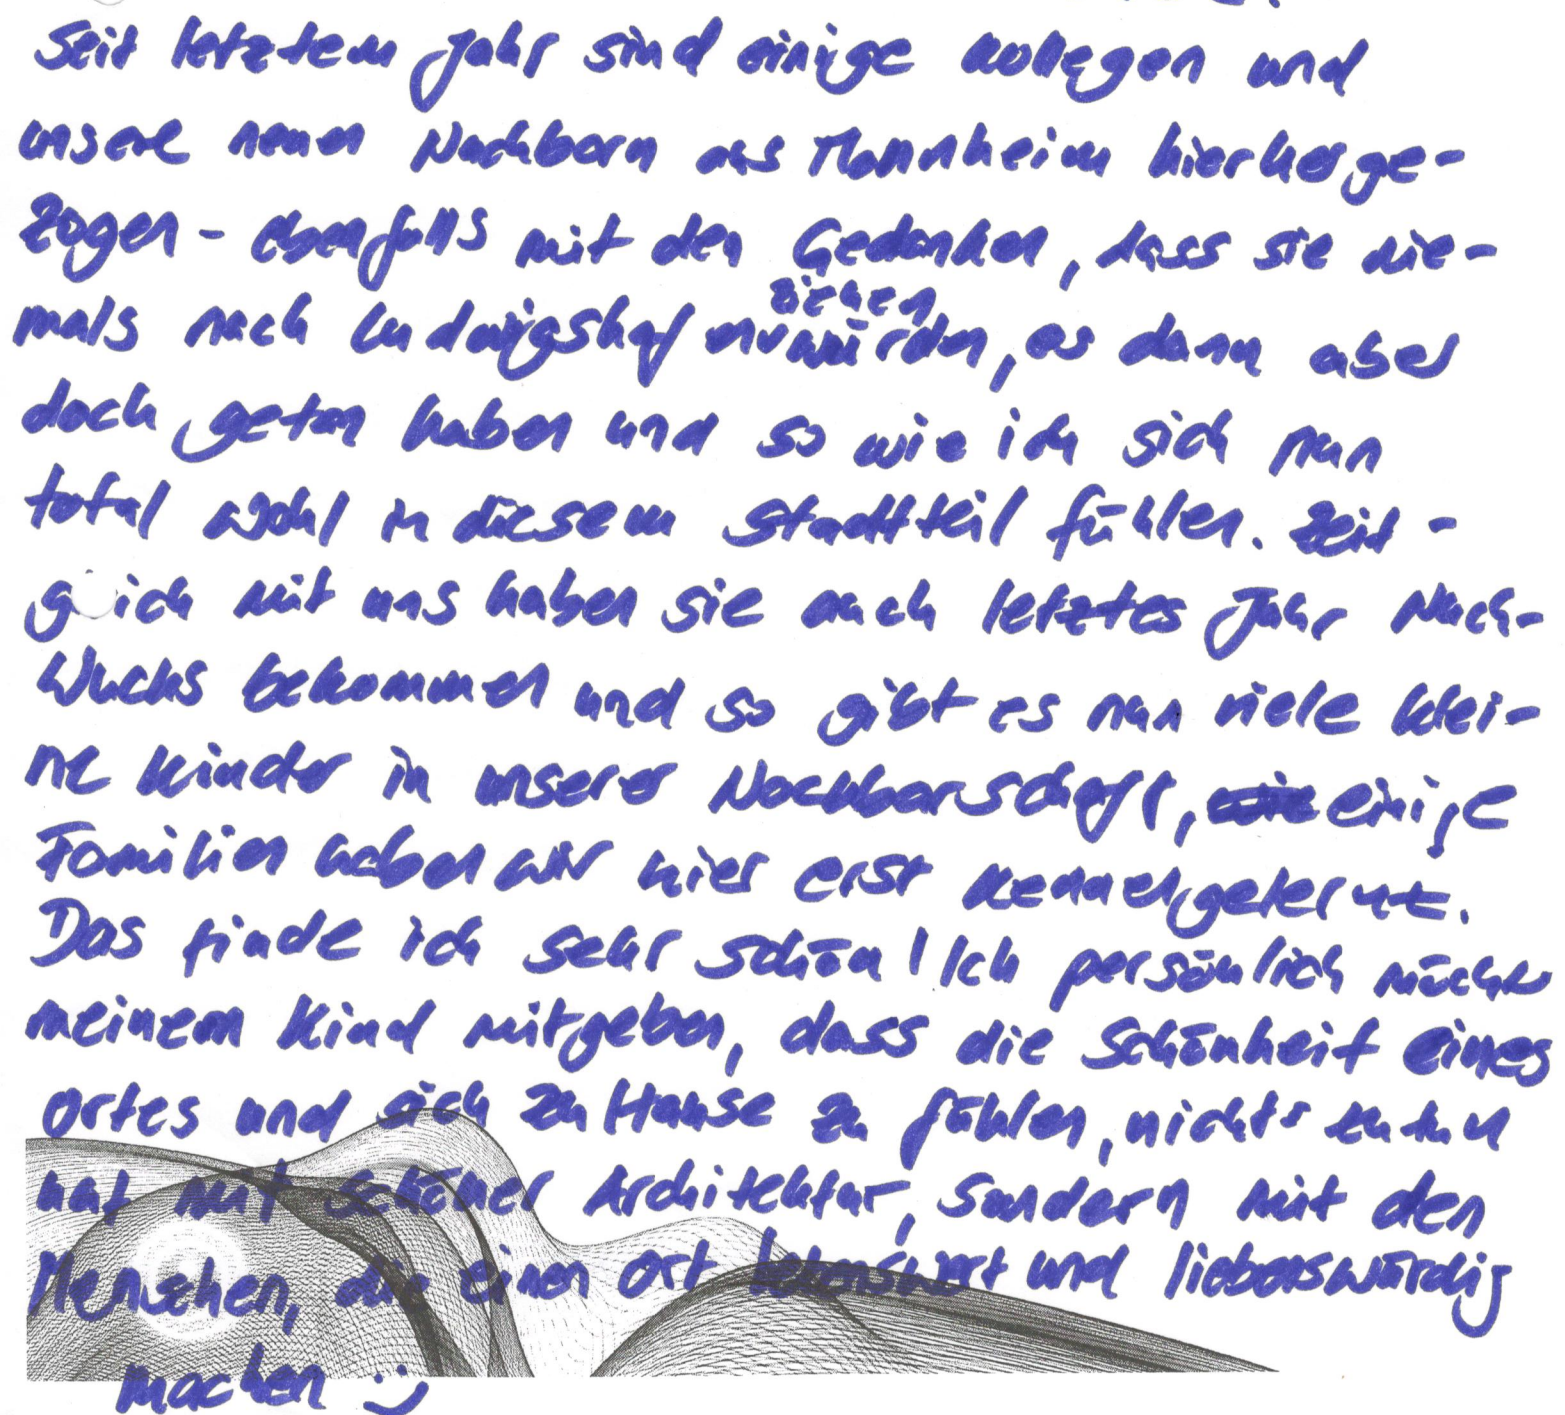 Seit letztem Jahr sind einige Kollegen und
unsere neuen Nachbarn aus Mannheim hierherge-
zogen - ebenfalls mit den Gedanken, dass sie nie-
mals nach Ludwigshafen ziehen würden, es dann aber
doch getan haben und so wie ich sich nun
total wohl in diesem Stadtteil fühlen. Zeit-
g ich mit uns haben sie auch letztes Jahr Nach-
wuchs bekommen und so gibt es nun viele klei-
ne Kinder in unserer Nachbarschaft, einige
Familien haben wir hier erst kennengelernt.
Das finde ich sehr schön! Ich persönlich möchte
meinem Kind mitgeben, dass die Schönheit eines
Ortes und sich zu Hause zu fühlen, nichts zu tun
hat mit schöner Architektur, sondern mit den
Menschen, die einen Ort lebenswert und liebenswürdig
machen :)